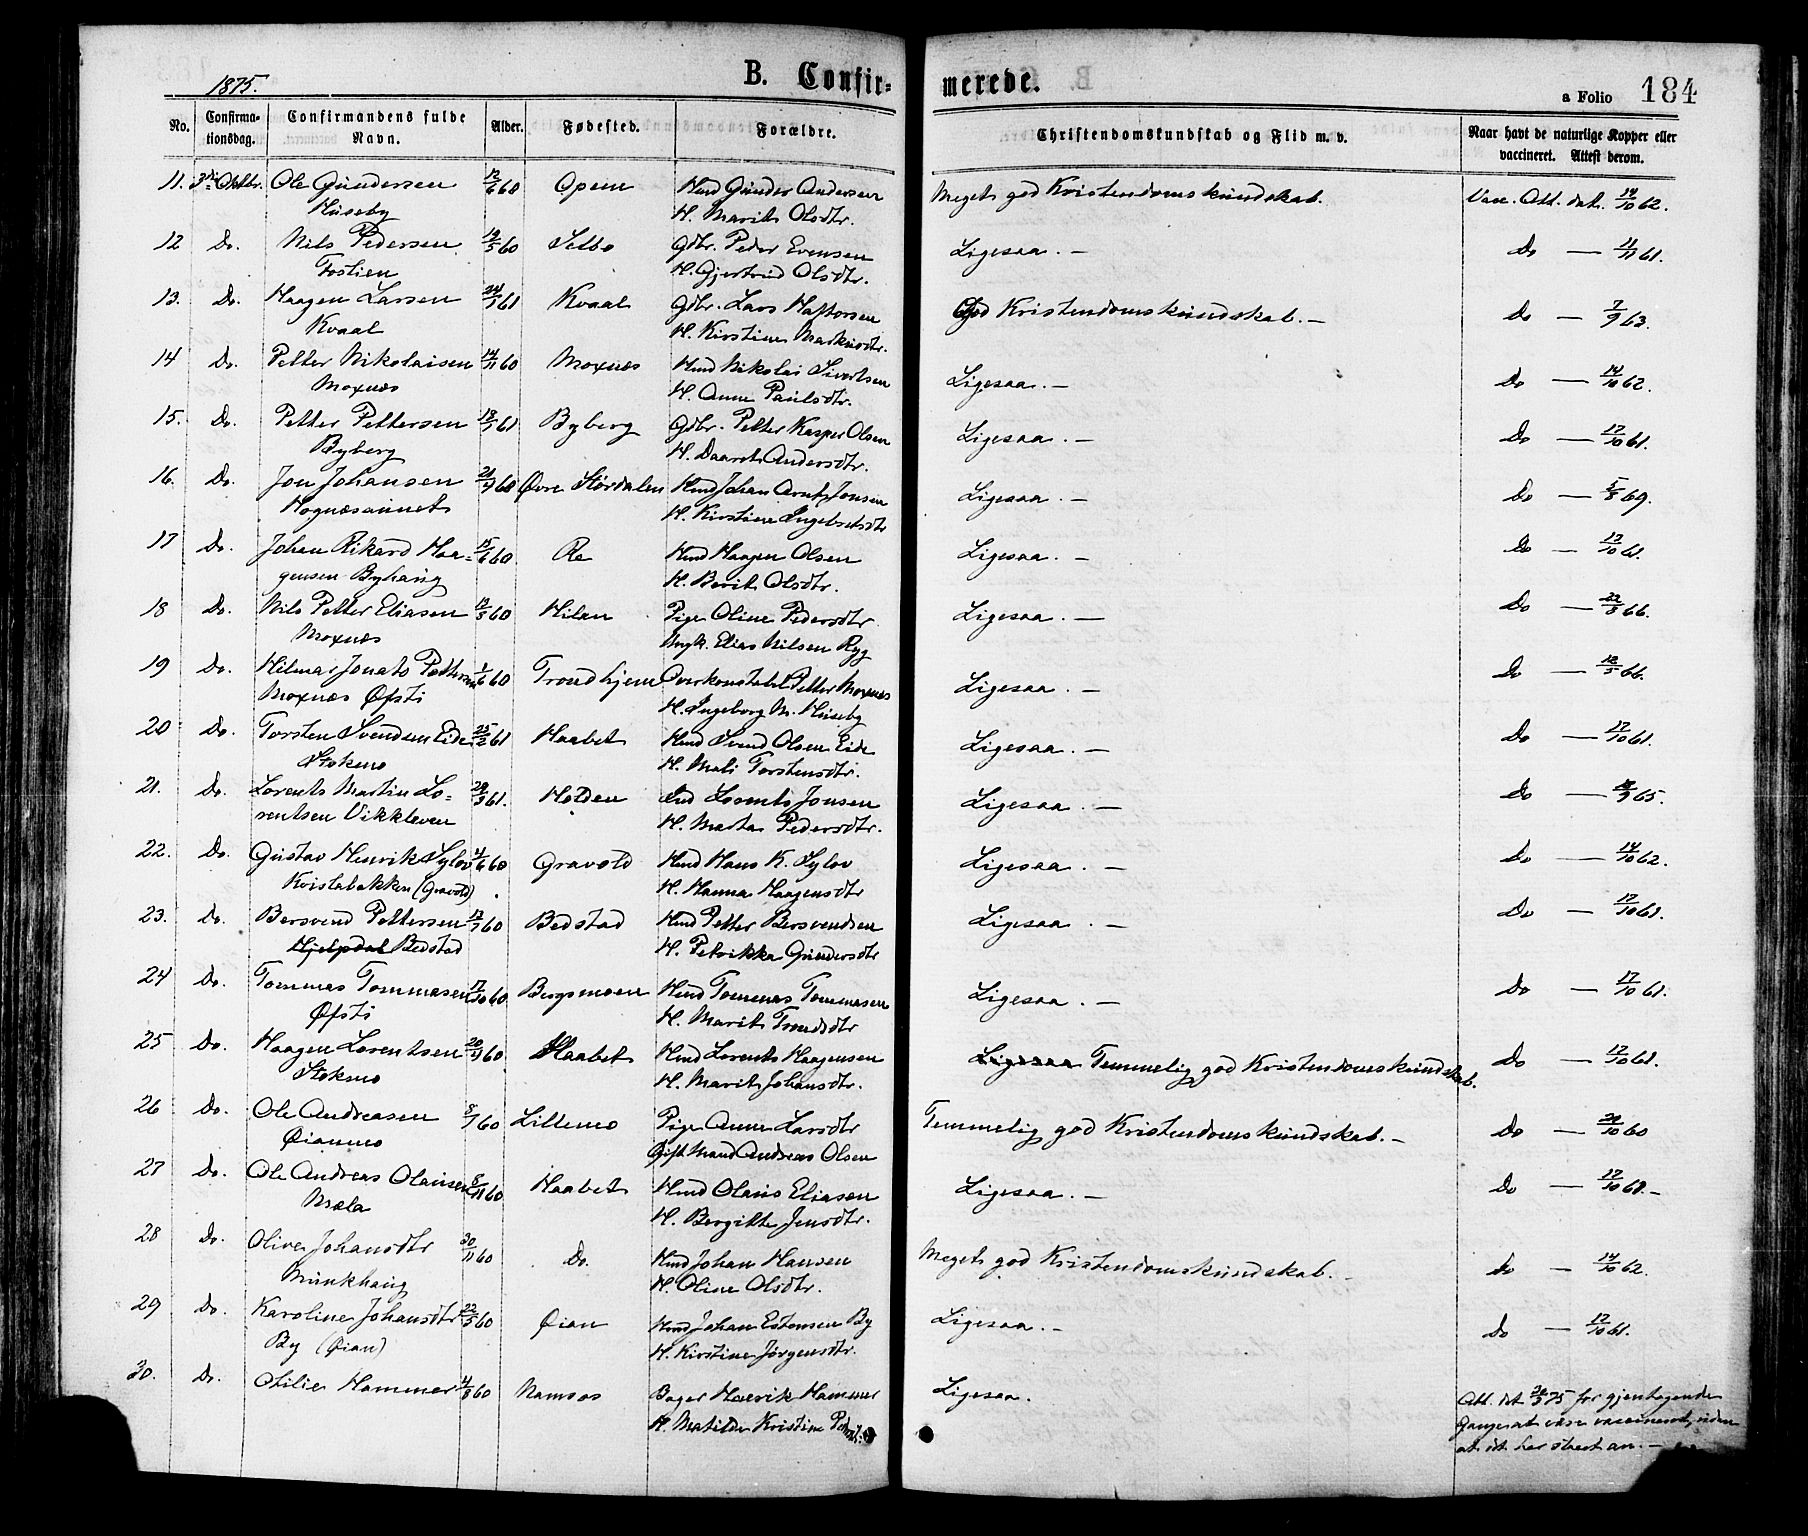 1875.
B. Confir-
merede.
a Folio 184
No. Confirma- tionsdag. Confirmandens fulde Navn. Alder. Fødested. Forældre. Christendomskundskab og Flid m. v. Naar havt de naturlige Kopper eller vaccineret. Attest derom.
11. 3die Oktbr. Ole Gundersen 12/6 60 Opem Hmd Gunder Andersen Meget god Kristendomskundskab. Vac. Att. dat. 14/10 62.
Huseby H. Marit Olsdtr.
12 Do. Nils Pedersen 19/5 60 Selbo Gdbr. Peder Evensen Ligesaa. — Do — 11/11 61.
Fostien H. Gjertrud Olsdtr.
13. Do. Haagen Larsen 24/1 61 Kvaal Gdbr. Lars Haftorsen God Kristendomskundskab. — Do — 7/9 63.
Kvaal H. Kirstine
14 Do. Petter Nikolaisen 14/11 60 Moxnæs Hmd Nikolai Sivertsen Ligesaa. — Do — 14/10 62.
Moxnæs H. Anne Paulsdtr.
15. Do. Petter Pettersen 18/1 61 Byberg Gdbr. Petter Kasper Olsen Ligesaa. — Do — 12/10 61.
Byberg H. Daaret Andersdtr.
16. Do. Jon Johansen 21/9 60 Øvre Størdalen Hmd Johan Arnt Jonsen Ligesaa. — Do — 5/8 69.
Hognæsaunet H. Kirstine Ingebretsdtr
17 Do. Johan Rikard Haa- 15/6 60 Re Hmd Haagen Olsen Ligesaa. — Do — 12/10 61.
gensen Byhaug H. Berit Olsdtr.
18 Do. Nils Petter Eliasen 13/8 60 Milan Pige Oline Pedersdtr. Ligesaa. — Do — 22/8 66.
Moxnæs Ungk. Elias Nilsen Ryg
19 Do. Hilmar Jonats Pettersen 1/6 60 Trondhjem Overkonstabel Petter Moxnæs Ligesaa. — Do — 18/5 66.
Moxnæs Øfsti H. Ingeborg M. Huseby
20 Do. Torsten Svendsen Eide 25/2 61 Haabet Hmd Svend Olsen Eide Ligesaa. — Do — 12/10 61.
Stokmo H. Mali Torstensdtr.
21. Do. Lorents Martin Lo- 28/3 61. Holden Ind Lorents Jonsen Ligesaa. — Do — 9 65.
rentsen Vikkleven H. Marta Pedersdtr.
22. Do. Gustav Henrik Sylov 4/6 60 Gravold Hmd Hans K. Sylov Ligesaa. — Do — 14/10 62.
Kvistabakken (Gravold) H. Hanna Haagensdtr
23. Do. Bersvend Pettersen 12/7 60 Bedstad Hmd Petter Bersvendsen Ligesaa. — Do — 12/10 61.
Hjelpdal Bedstad H. Petrikka Gundersdtr
24 Do. Tommas Tommasen 17/10 60 Bergsmoen Hmd Tommas Tommasen Ligesaa. — Do — 12/10 61.
Øfsti H. Marit Trondsdtr
25 Do. Haagen Lorentsen 20/9 60 Haabet Hmd Lorents Haagensen Ligesaa Temmelig god Kristendomskundskab. Do — 12/10 61.
Stokmo H. Marit Johansdtr.
26 Do. Ole Andreasen 8/7 60 Lillemo Pige Anne Larsdtr Temmelig god Kristendomskundskab. — Do — 10 60
Øianmo Gift Mand Andreas Olsen
27 Do. Ole Andreas Olausen 8/11 60 Haabet Hmd Olaus Eliasen Ligesaa. — Do — 12/10 61. —
Mæla H. Bergitte Jensdtr.
28 Do. Olive Johansdtr 30/11 60 Do. Hmd Johan Hansen Meget god Kristendomskundskab. — Do — 14/10 62.
Munkhaug H. Oline Olsdtr.
29 Do. Karoline Johansdtr 22/5 60 Øian Hmd Johan Estensen By Ligesaa. — Do — 12/10 61.
By (Øian) H. Kirstine Jørgensdtr.
30. Do. Otilie Hammer 4/8 60 Namsos Bager Henrik Hammer Ligesaa. Att. dat. 75 for gjentagende
H. Matilde Kristine Gange at være vaccineret, uden
at det har slaaet an. —